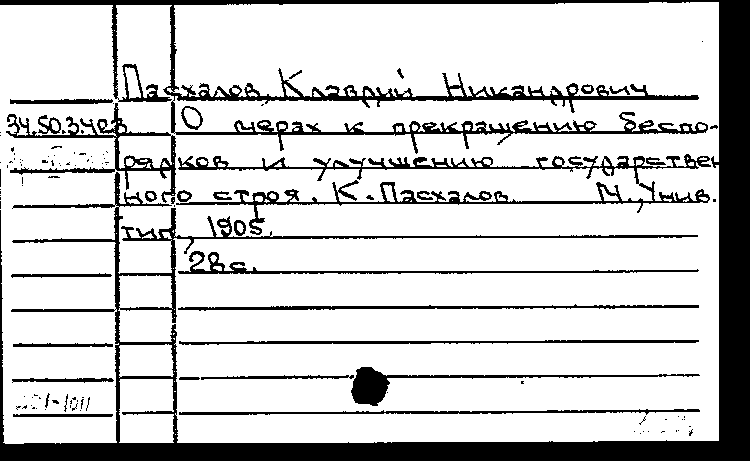 Пасхалов, Клавдий Никандрович
О мерах к прекращению беспо-
рядков и улучшению государствен
ного строя. К. Пасхалов М., Унив.
тип., 1905.
28 с.